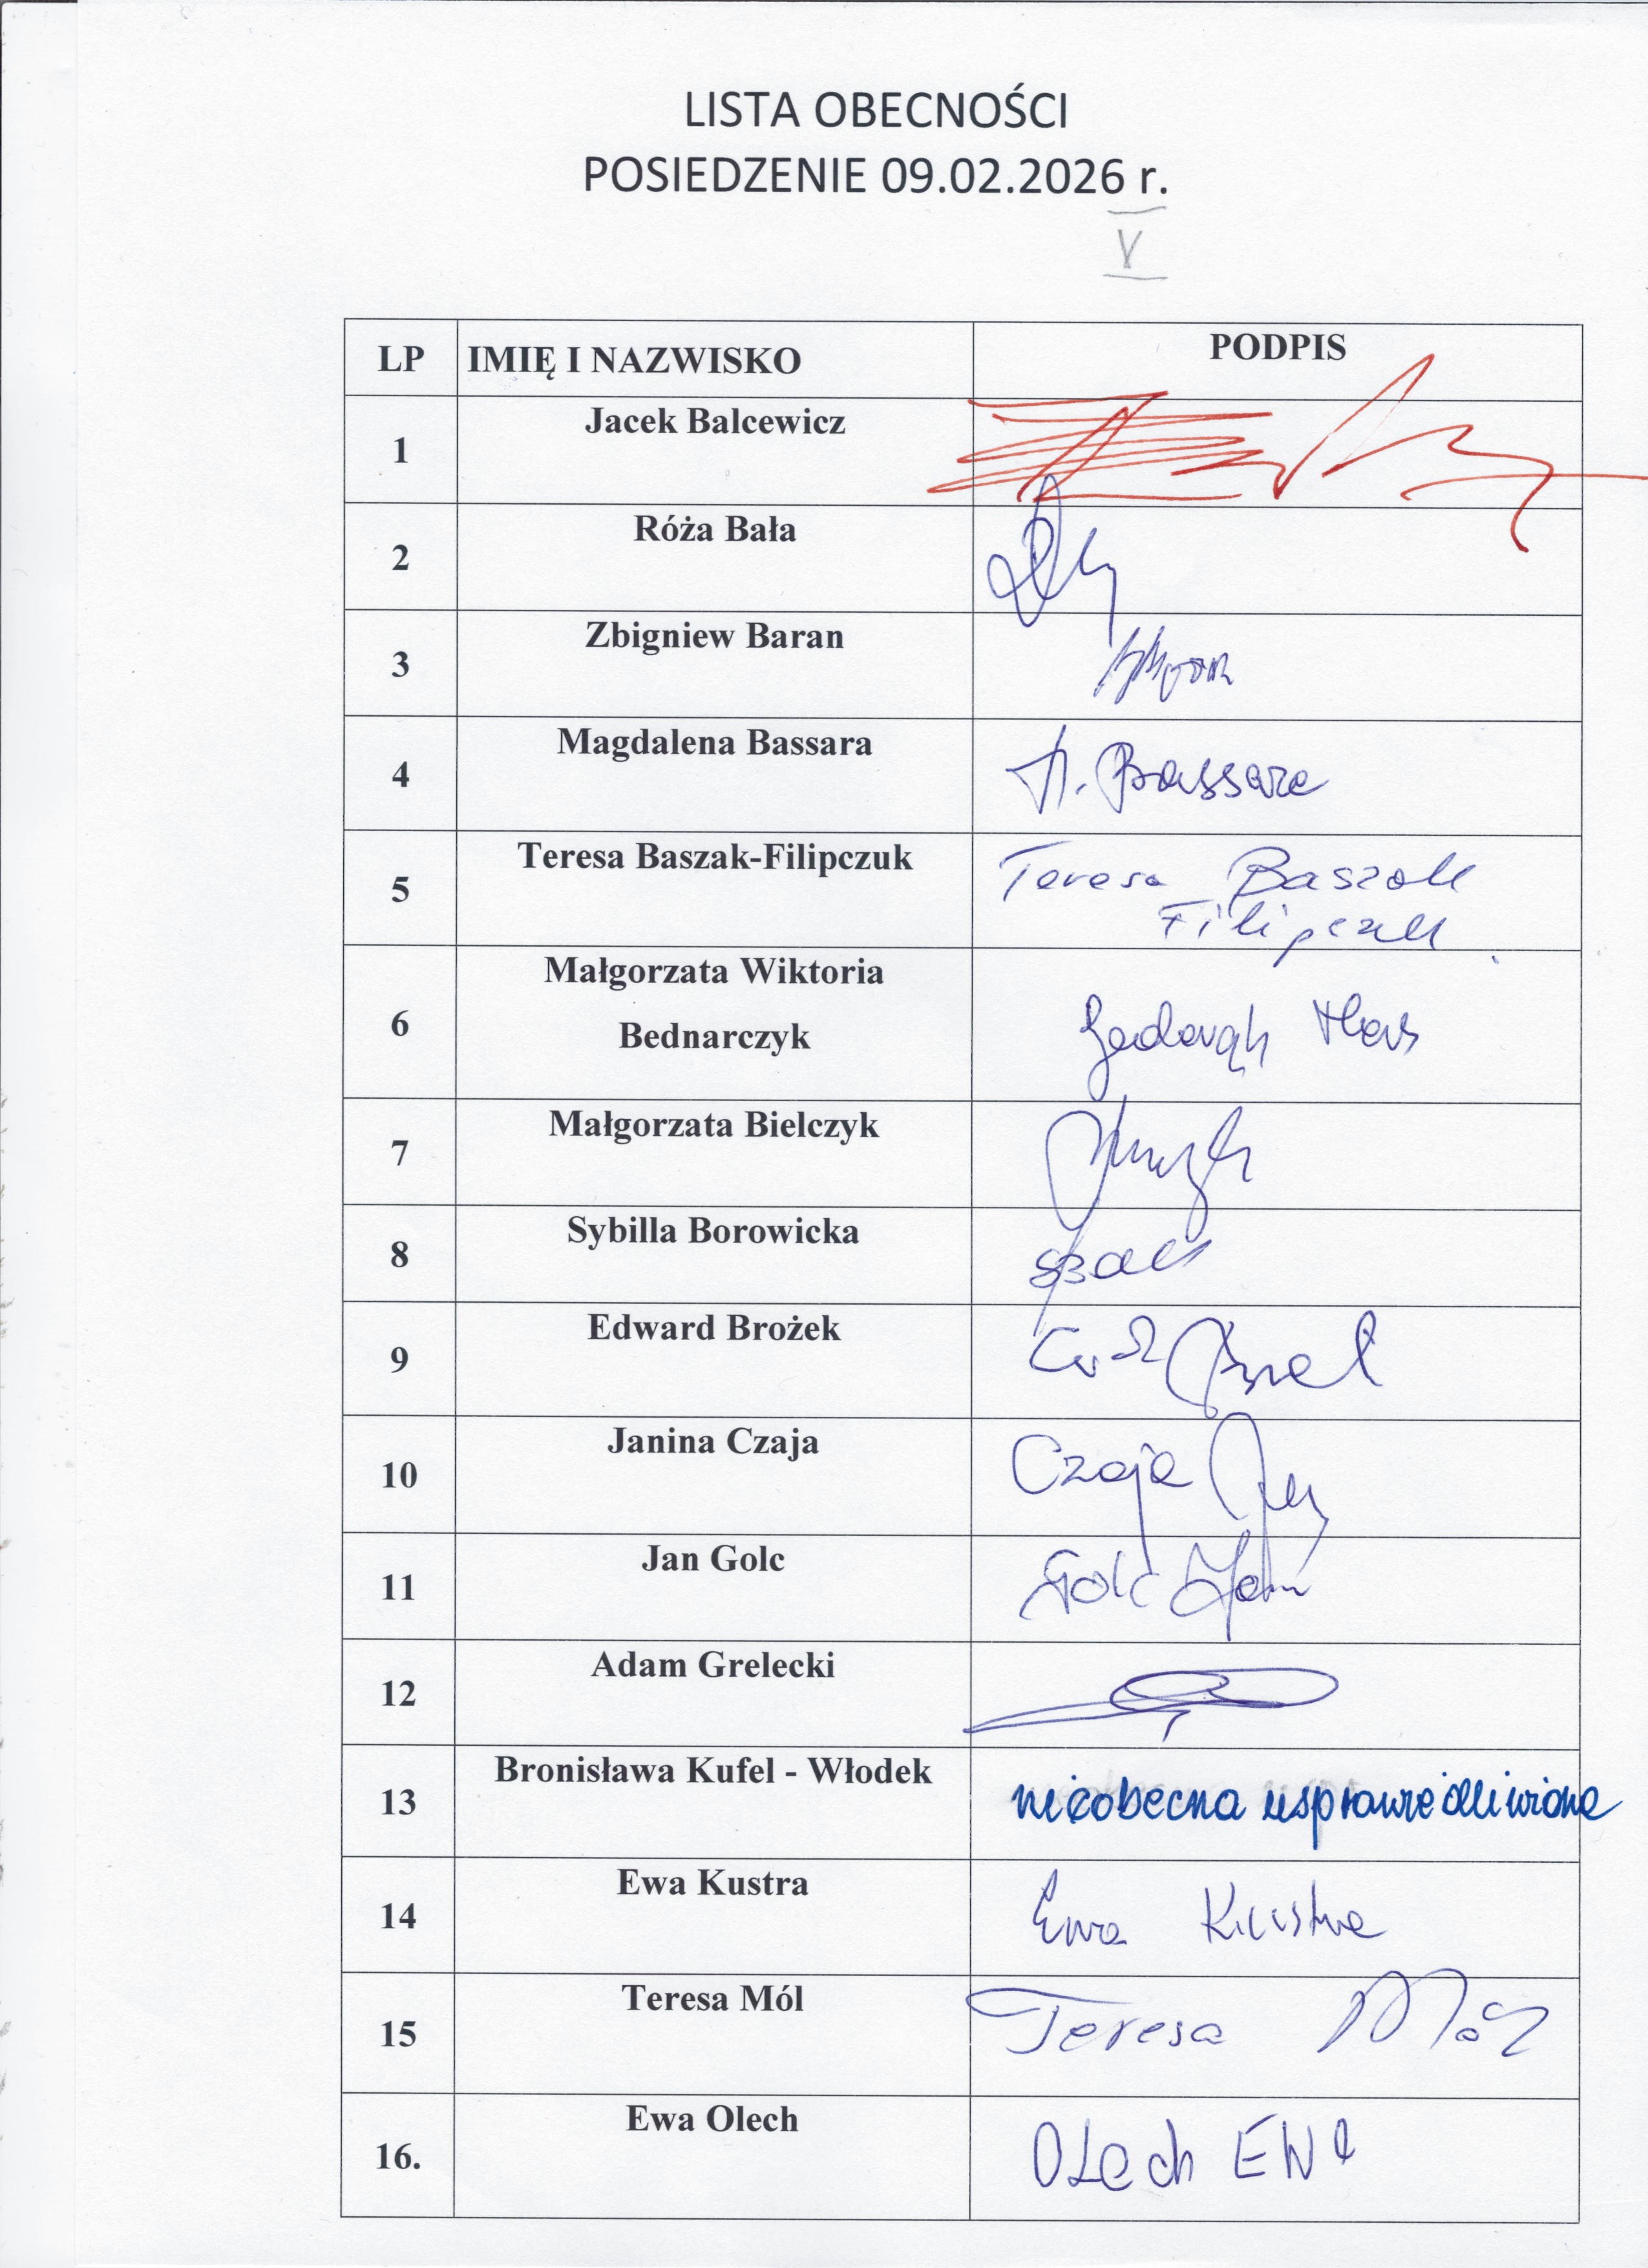 LISTA OBECNOŚCI
POSIEDZENIE 09.02.2026 r.
V
LP IMIĘ I NAZWISKO PODPIS
1 Jacek Balcewicz
2 Róża Bała
3 Zbigniew Baran
4 Magdalena Bassara M. Bassara
5 Teresa Baszak-Filipczuk Teresa Baszak
Filipczuk
Małgorzata Wiktoria
6
Bednarczyk
7 Małgorzata Bielczyk
8 Sybilla Borowicka
9 Edward Brożek
10 Janina Czaja Czaja
11 Jan Golc Golc Jan
12 Adam Grelecki
13 Bronisława Kufel - Włodek nieobecna usprawiedliwiona
14 Ewa Kustra Ewa Kustra
15 Teresa Mól Teresa Mól
16. Ewa Olech OLech EWa